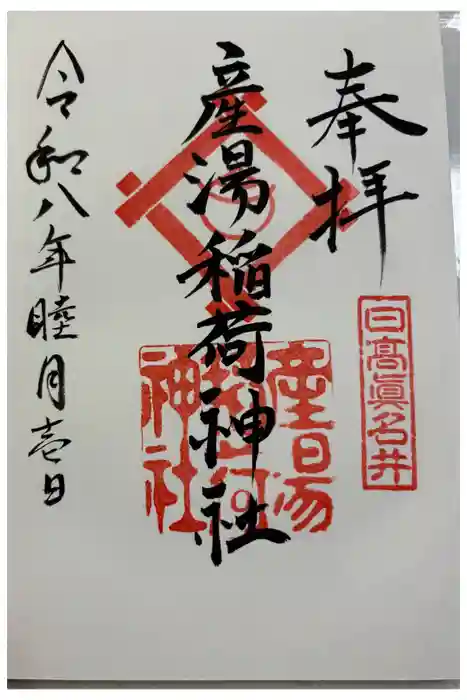 奉拝
日髙眞名井
産湯稲荷神社
産湯稲荷神社
令和八年睦月壱日